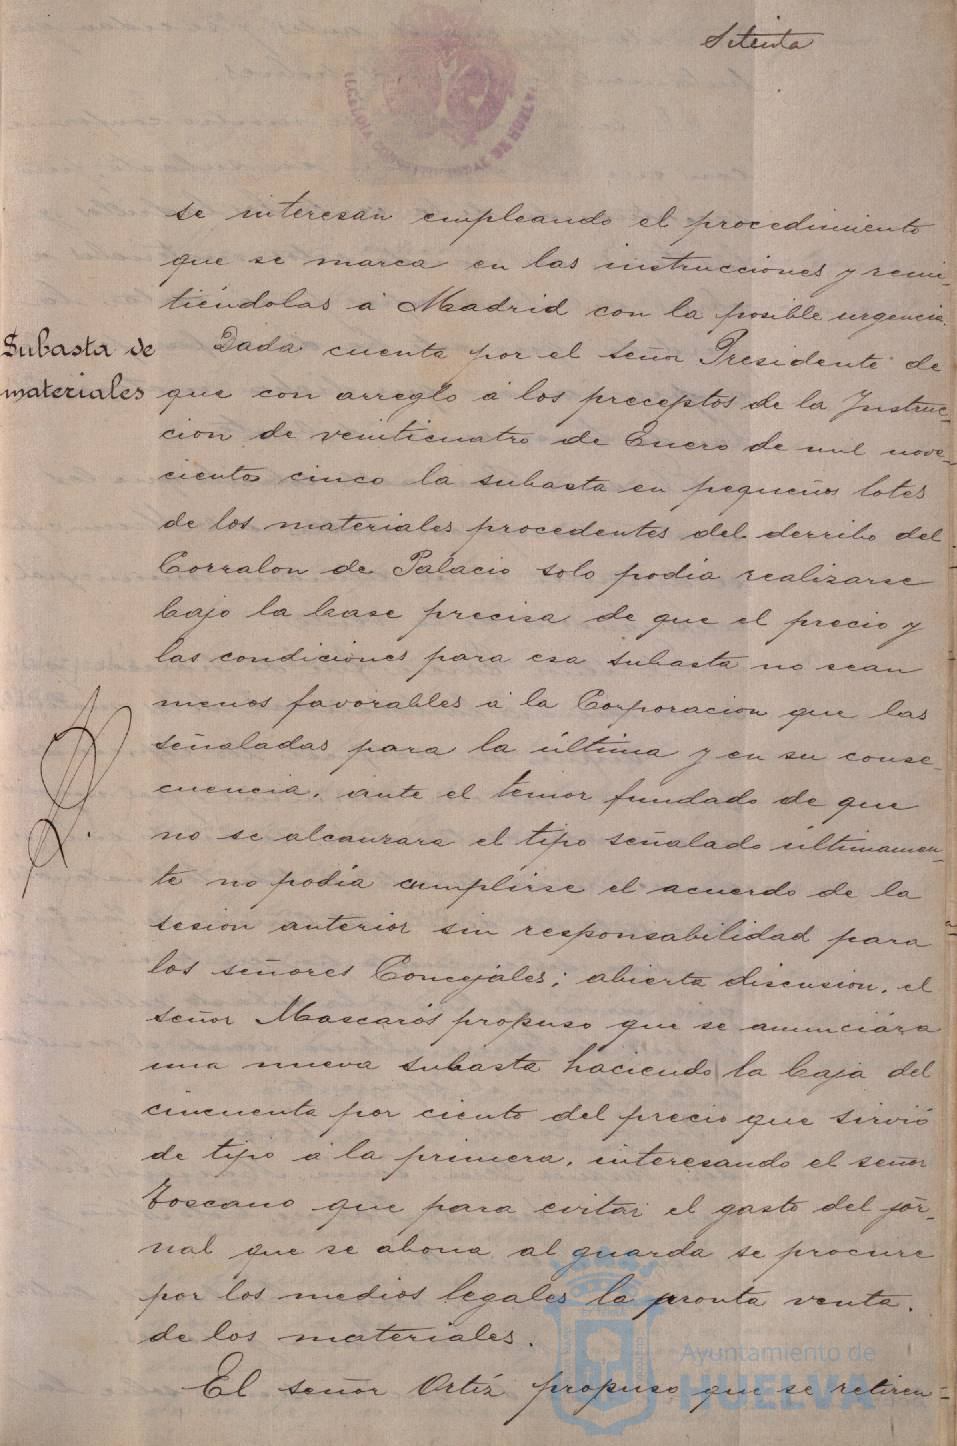 Setenta
ALCALDIA CONSTITUCIONAL DE HUELVA
se interesan empleando el procedimiento
que se marca en las instrucciones y remi-
tiéndolas á Madrid con la posible urgencia.
Subasta de
materiales
Dada cuenta por el señor Presidente de
que con arreglo á los preceptos de la Instruc-
cion de veinticuatro de Enero de mil nove-
cientos cinco la subasta en pequeños lotes
de los materiales procedentes del derribo del
Corralon de Palacio solo podia realizarse
bajo la base precisa de que el precio y
las condiciones para esa subasta no sean
menos favorables á la Corporacion que las
señaladas para la última y en su conse-
cuencia, ante el temor fundado de que
no se alcanzara el tipo señalado últimamen-
te no podía cumplirse el acuerdo de la
sesion anterior sin responsabilidad para
los señores Concejales; abierta discusion, el
señor Mascarós propuso que se anunciára
una nueva subasta haciendo la baja del
cincuenta por ciento del precio que sirvió
de tipo á la primera, interesando el señor
Toscano que para evitar el gasto del jor-
nal que se abona al guarda se procure
por los medios legales la pronta venta.
de los materiales.
El señor Ortíz propuso que se retiren=
Ayuntamiento de
HUELVA